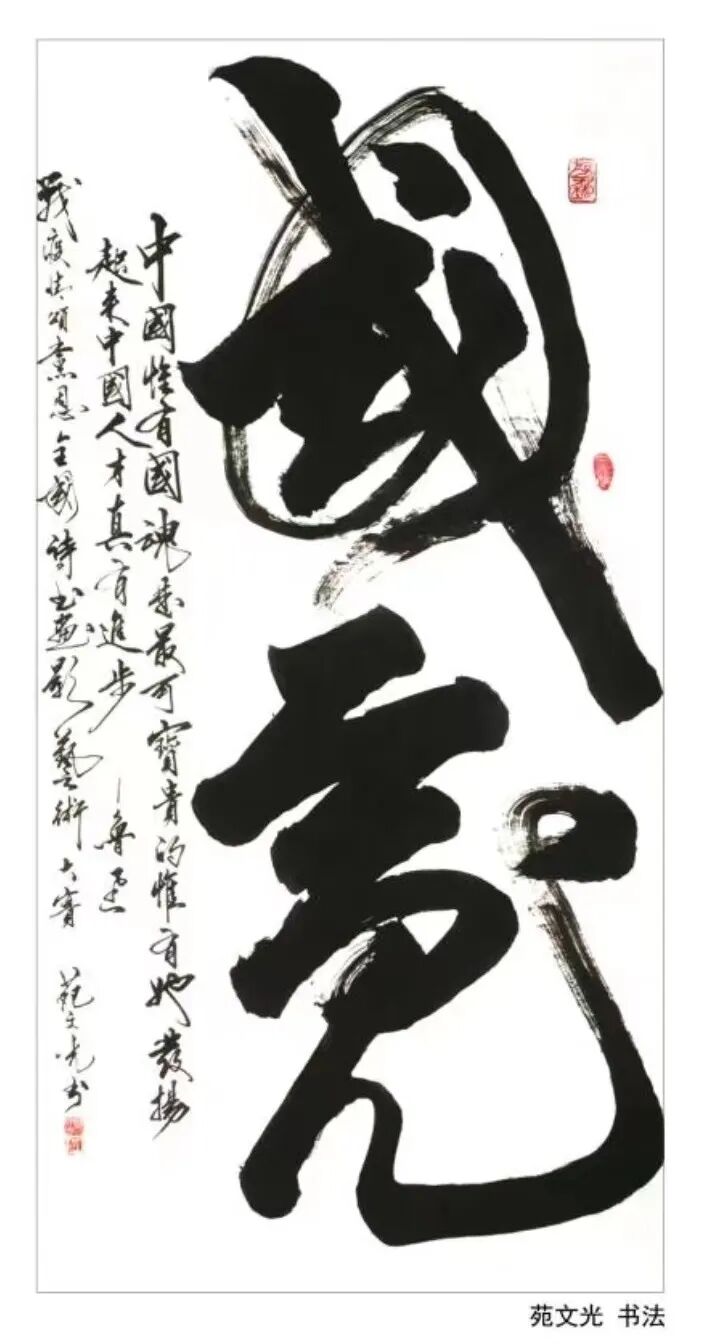 國魂
中國惟有國魂是最可寶貴的惟有她發揚
起來中國人才真有進步 —魯迅
戰疫情頌黨恩全國詩书畫影藝術大賽 苑文光书
苑文光 书法